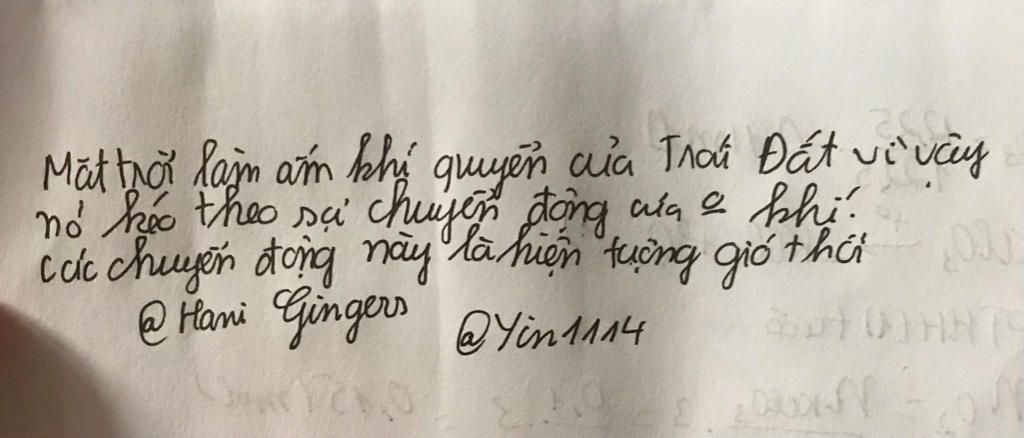 Mặt trời làm ấm khí quyển của Trái Đất vì vậy
nó kéo theo sự chuyển động của khí.
các chuyển động này là hiện tượng gió thổi
@Hani Gingers
@Yin1114